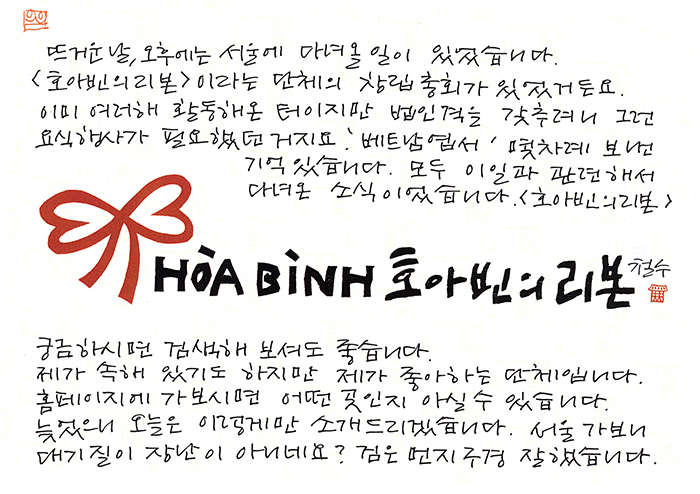 뜨거운 날, 오후에는 서울에 다녀올 일이 있었습니다.
<호아빈의 리본>이라는 단체의 창립총회가 있었거든요.
이미 여러해 활동해온 터이지만 법인격을 갖추려니 그런
요식행사가 필요했던 거지요. '베트남엽서' 몇차례 보낸
기억 있습니다. 모두 이일과 관련해서
다녀온 소식이었습니다. <호아빈의 리본>
HÒA BÌNH 호아빈의 리본 철수
궁금하시면 검색해 보셔도 좋습니다.
제가 속해 있기도 하지만 제가 좋아하는 단체입니다.
홈페이지에 가보시면 어떤 곳인지 아실 수 있습니다.
늦었으니 오늘은 이렇게만 소개드리겠습니다. 서울 가보니
대기질이 장난이 아니네요? 검은 먼지 구경 잘 했습니다.